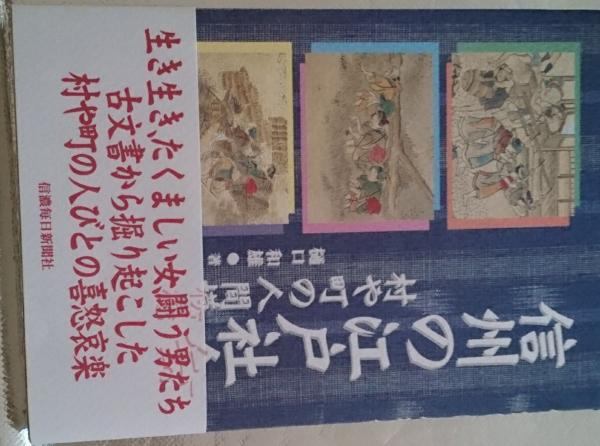 信州の江戸社会
村や町の人間
樋口和雄●著
生き生き、たくましい女闘う男たち
古文書から掘り起こした
村や町の人びとの喜怒哀楽
信濃毎日新聞社